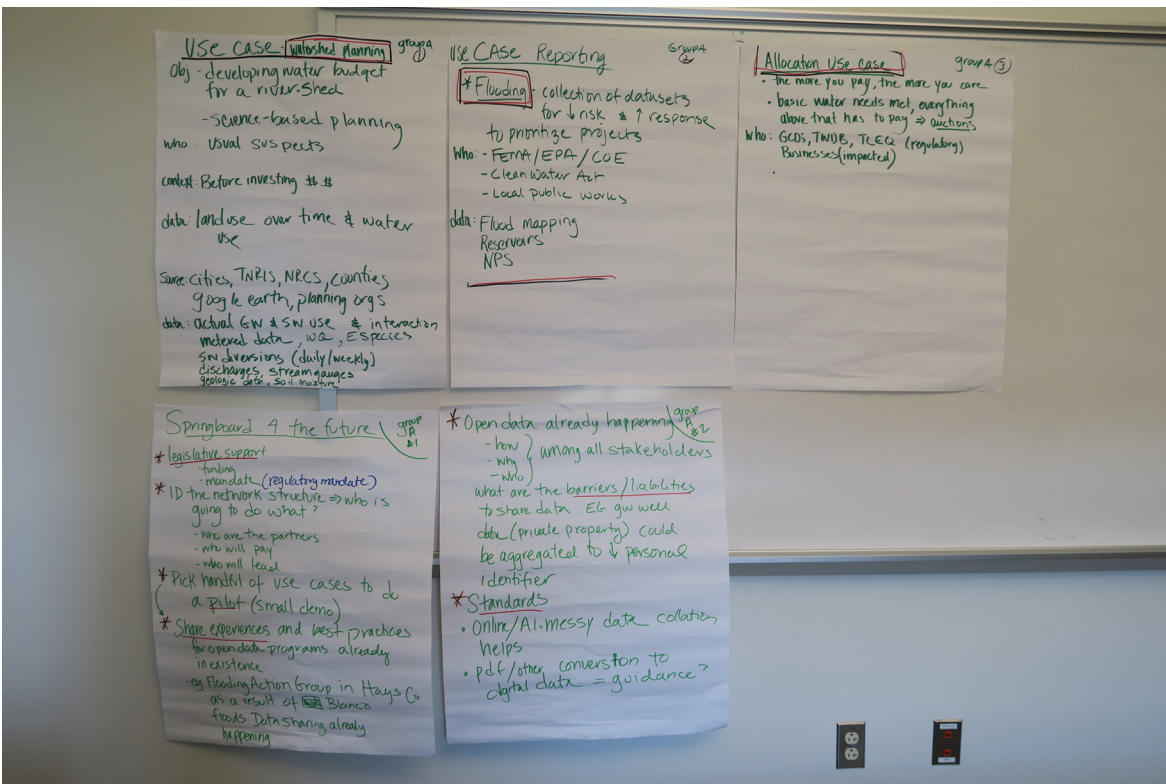 Use Case - Watershed planning group A 1
Obj - developing water budget
for a river-shed
- science-based planning
who : Usual suspects
context: Before investing $ $
data: landuse over time & water
use
source: cities, TNRIS, NRCS, counties
google earth, planning orgs
data: actual GW & SW use & interaction
metered data, WQ, ESpecies
SW diversions (daily/weekly)
discharges, streamgauges
geologic data, soil moisture
Use CASE Reporting Group A 2
* Flooding - collection of datasets
for ↓ risk & ↑ response
to prioritize projects
Who: - FEMA/EPA/COE
- Clean Water Act
- Local public works
data: Flood mapping
Reservoirs
NPS
Allocation Use case group A 3
• the more you pay, the more you care
• basic water needs met, everything
above that has to pay ⇒ auctions
who: GCDs, TWDB, TCEQ (regulatory)
Businesses (impacted)
Springboard 4 the future group A &1
* legislative support
- funding
- mandate (regulatory mandate)
* ID the network structure ⇒ who is
going to do what?
- who are the partners
- who will pay
- who will lead
* Pick handful of use cases to do
a pilot (small demo)
* Share experiences and best practices
for open data programs already
in existence
- eg Flooding Action Group in Hays Co
as a result of Blanco
floods. Data sharing already
happening
* Open data already happening group A &2
- how
- why } among all stakeholders
- who
what are the barriers/liabilities
to share data. EG gw well
data (private property) could
be aggregated to ↓ personal
identifier
* Standards
• Online/AI=messy data collation
helps
• pdf/other conversion to
digital data = guidance?